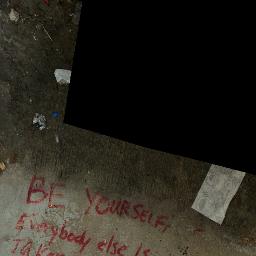 BE YOURSELF,
Everybody else Is
TAKen